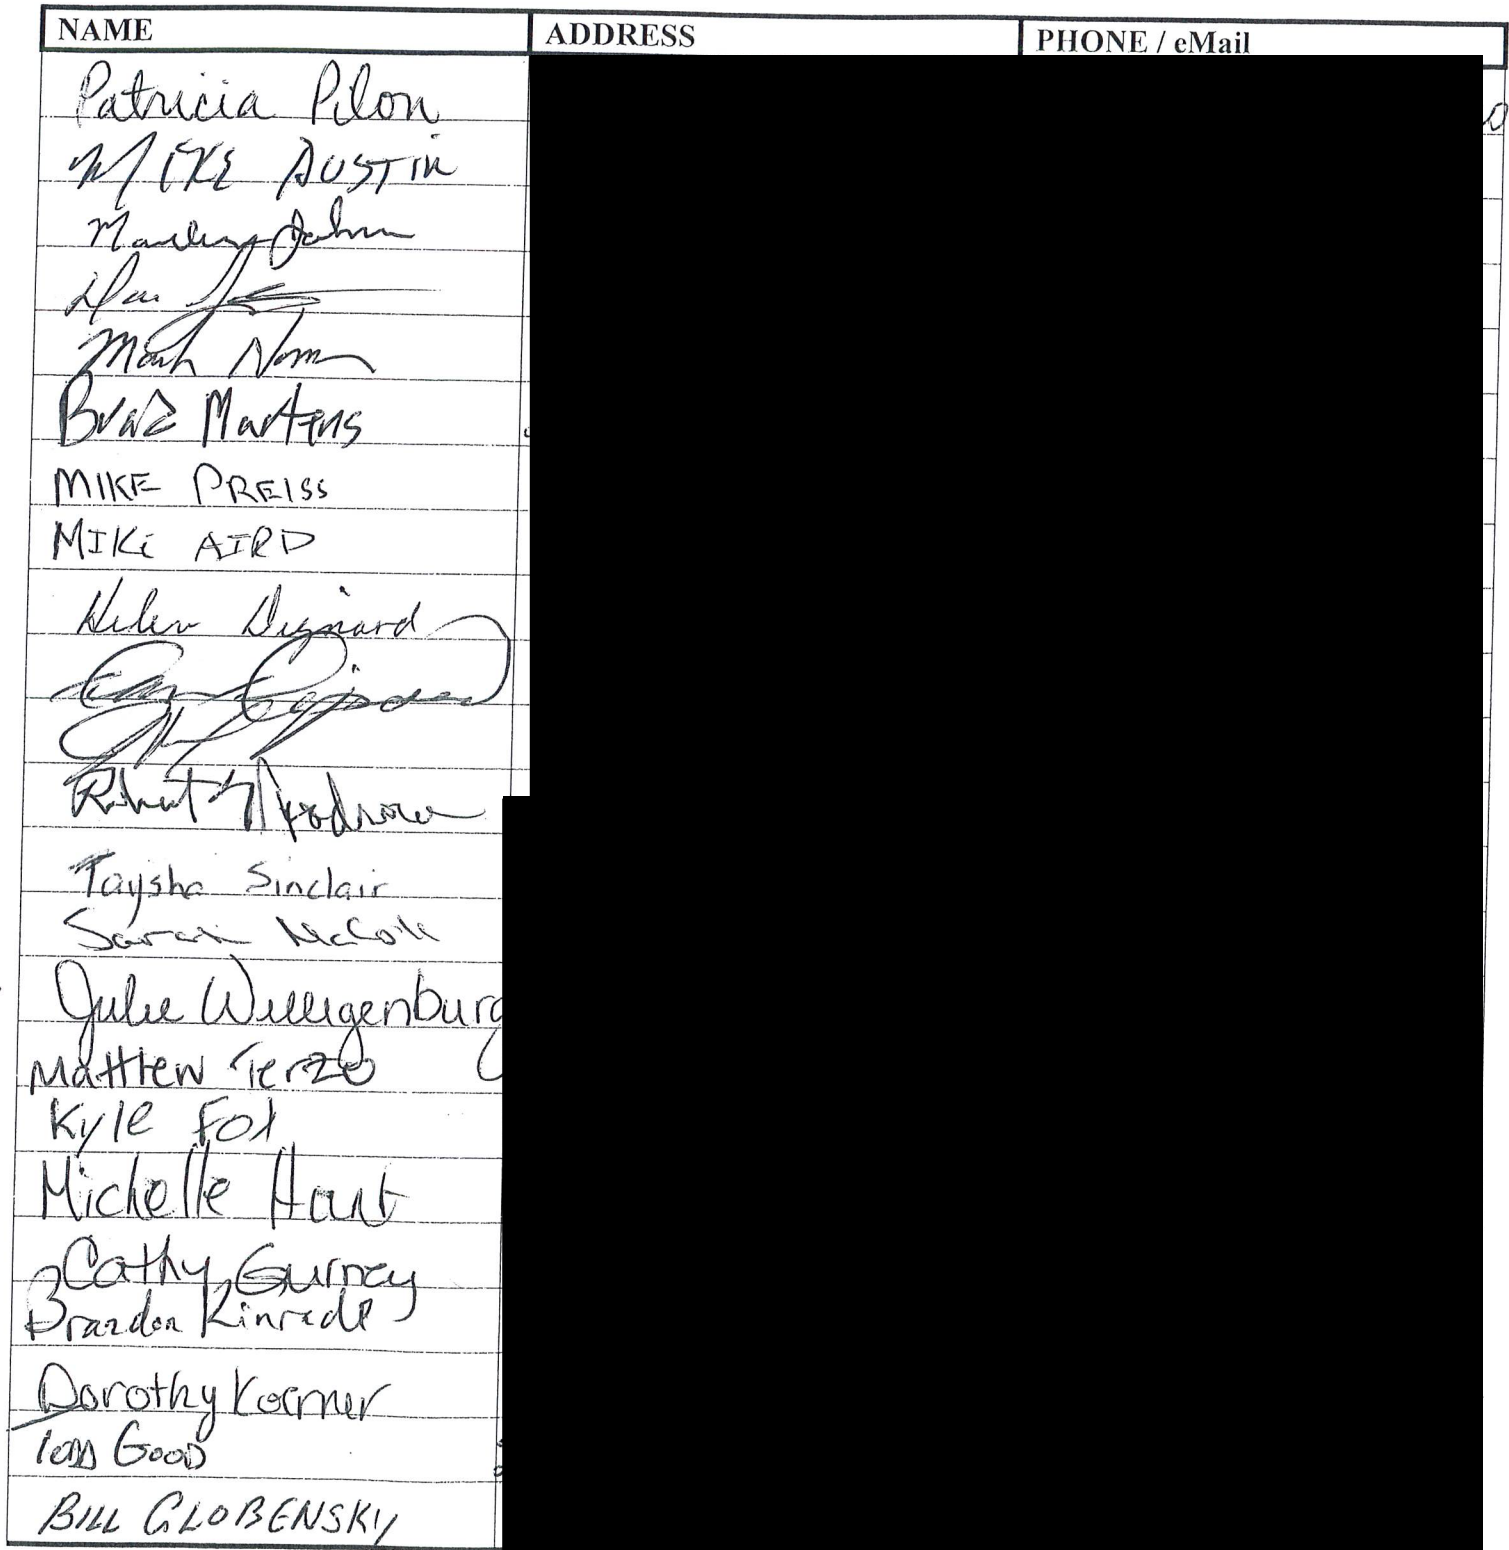 NAME ADDRESS PHONE / eMail
Patricia Pilon
MIKE AUSTIN
Mark
Brad Martens
MIKE PREISS
MIKE AIRD
Helen Dignard
Robert Woodrow
Taysha Sinclair
Sarah McColl
Julie Willigenburg
Matthew Terzo
Kyle Fox
Michelle Hart
Cathy Gurney
Brandon Kinrade
Dorothy Koerner
Todd Good
BILL GLOBENSKY